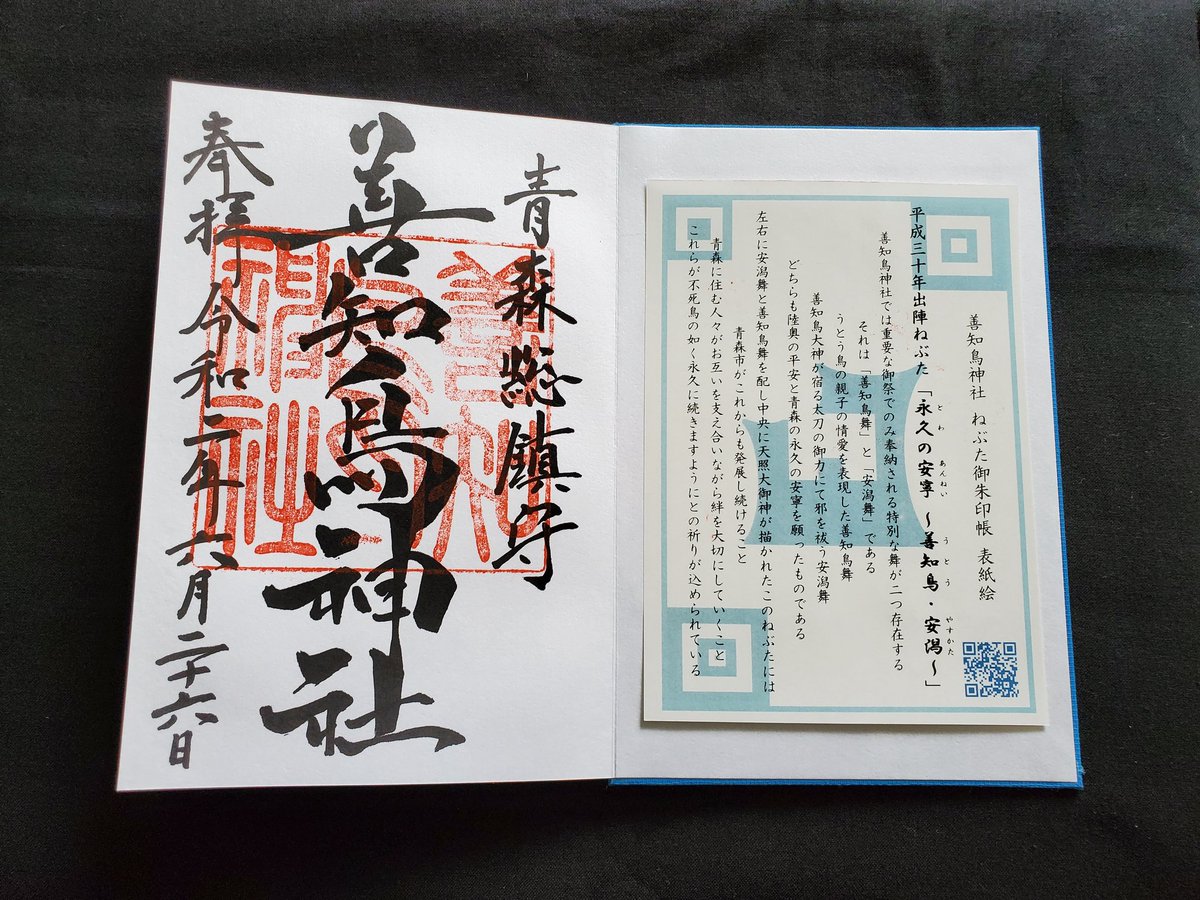 青森総鎮守
善知鳥神社
奉拝 令和二年六月二十六日
善知鳥神社 ねぶた御朱印帳 表紙絵
平成三十年出陣ねぶた「永久の安寧 ～善知鳥・安潟～」
とわ あんねい うとう やすかた
善知鳥神社では重要な御祭でのみ奉納される特別な舞が二つ存在する
それは「善知鳥舞」と「安潟舞」である
うとう鳥の親子の情愛を表現した善知鳥舞
善知鳥大神が宿る太刀の御力にて邪を祓う安潟舞
どちらも陸奥の平安と青森の永久の安寧を願ったものである
左右に安潟舞と善知鳥舞を配し中央に天照大御神が描かれたこのねぶたには
青森市がこれからも発展し続けること
青森に住む人々がお互いを支え合いながら絆を大切にしていくこと
これらが不死鳥の如く永久に続きますようにとの祈りが込められている